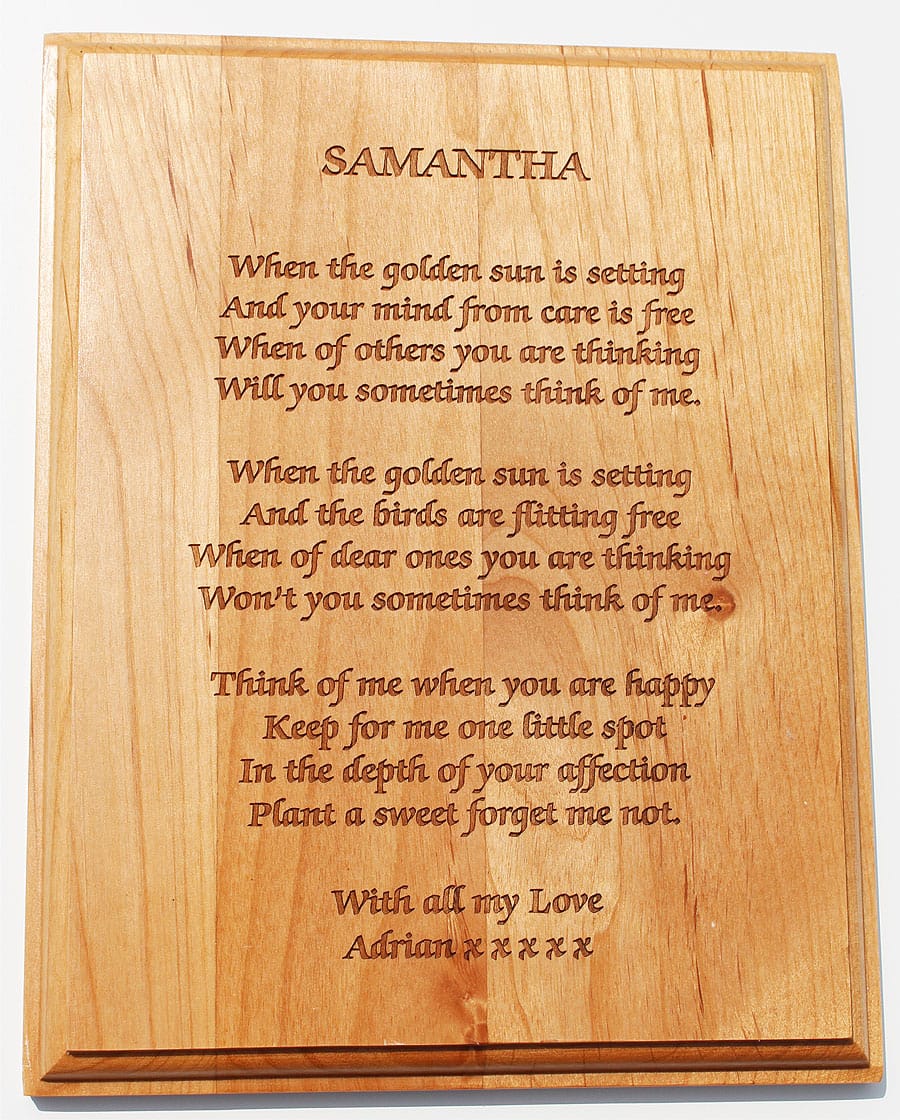 SAMANTHA
When the golden sun is setting
And your mind from care is free
When of others you are thinking
Will you sometimes think of me.
When the golden sun is setting
And the birds are flitting free
When of dear ones you are thinking
Won't you sometimes think of me.
Think of me when you are happy
Keep for me one little spot
In the depth of your affection
Plant a sweet forget me not.
With all my Love
Adrian x x x x x